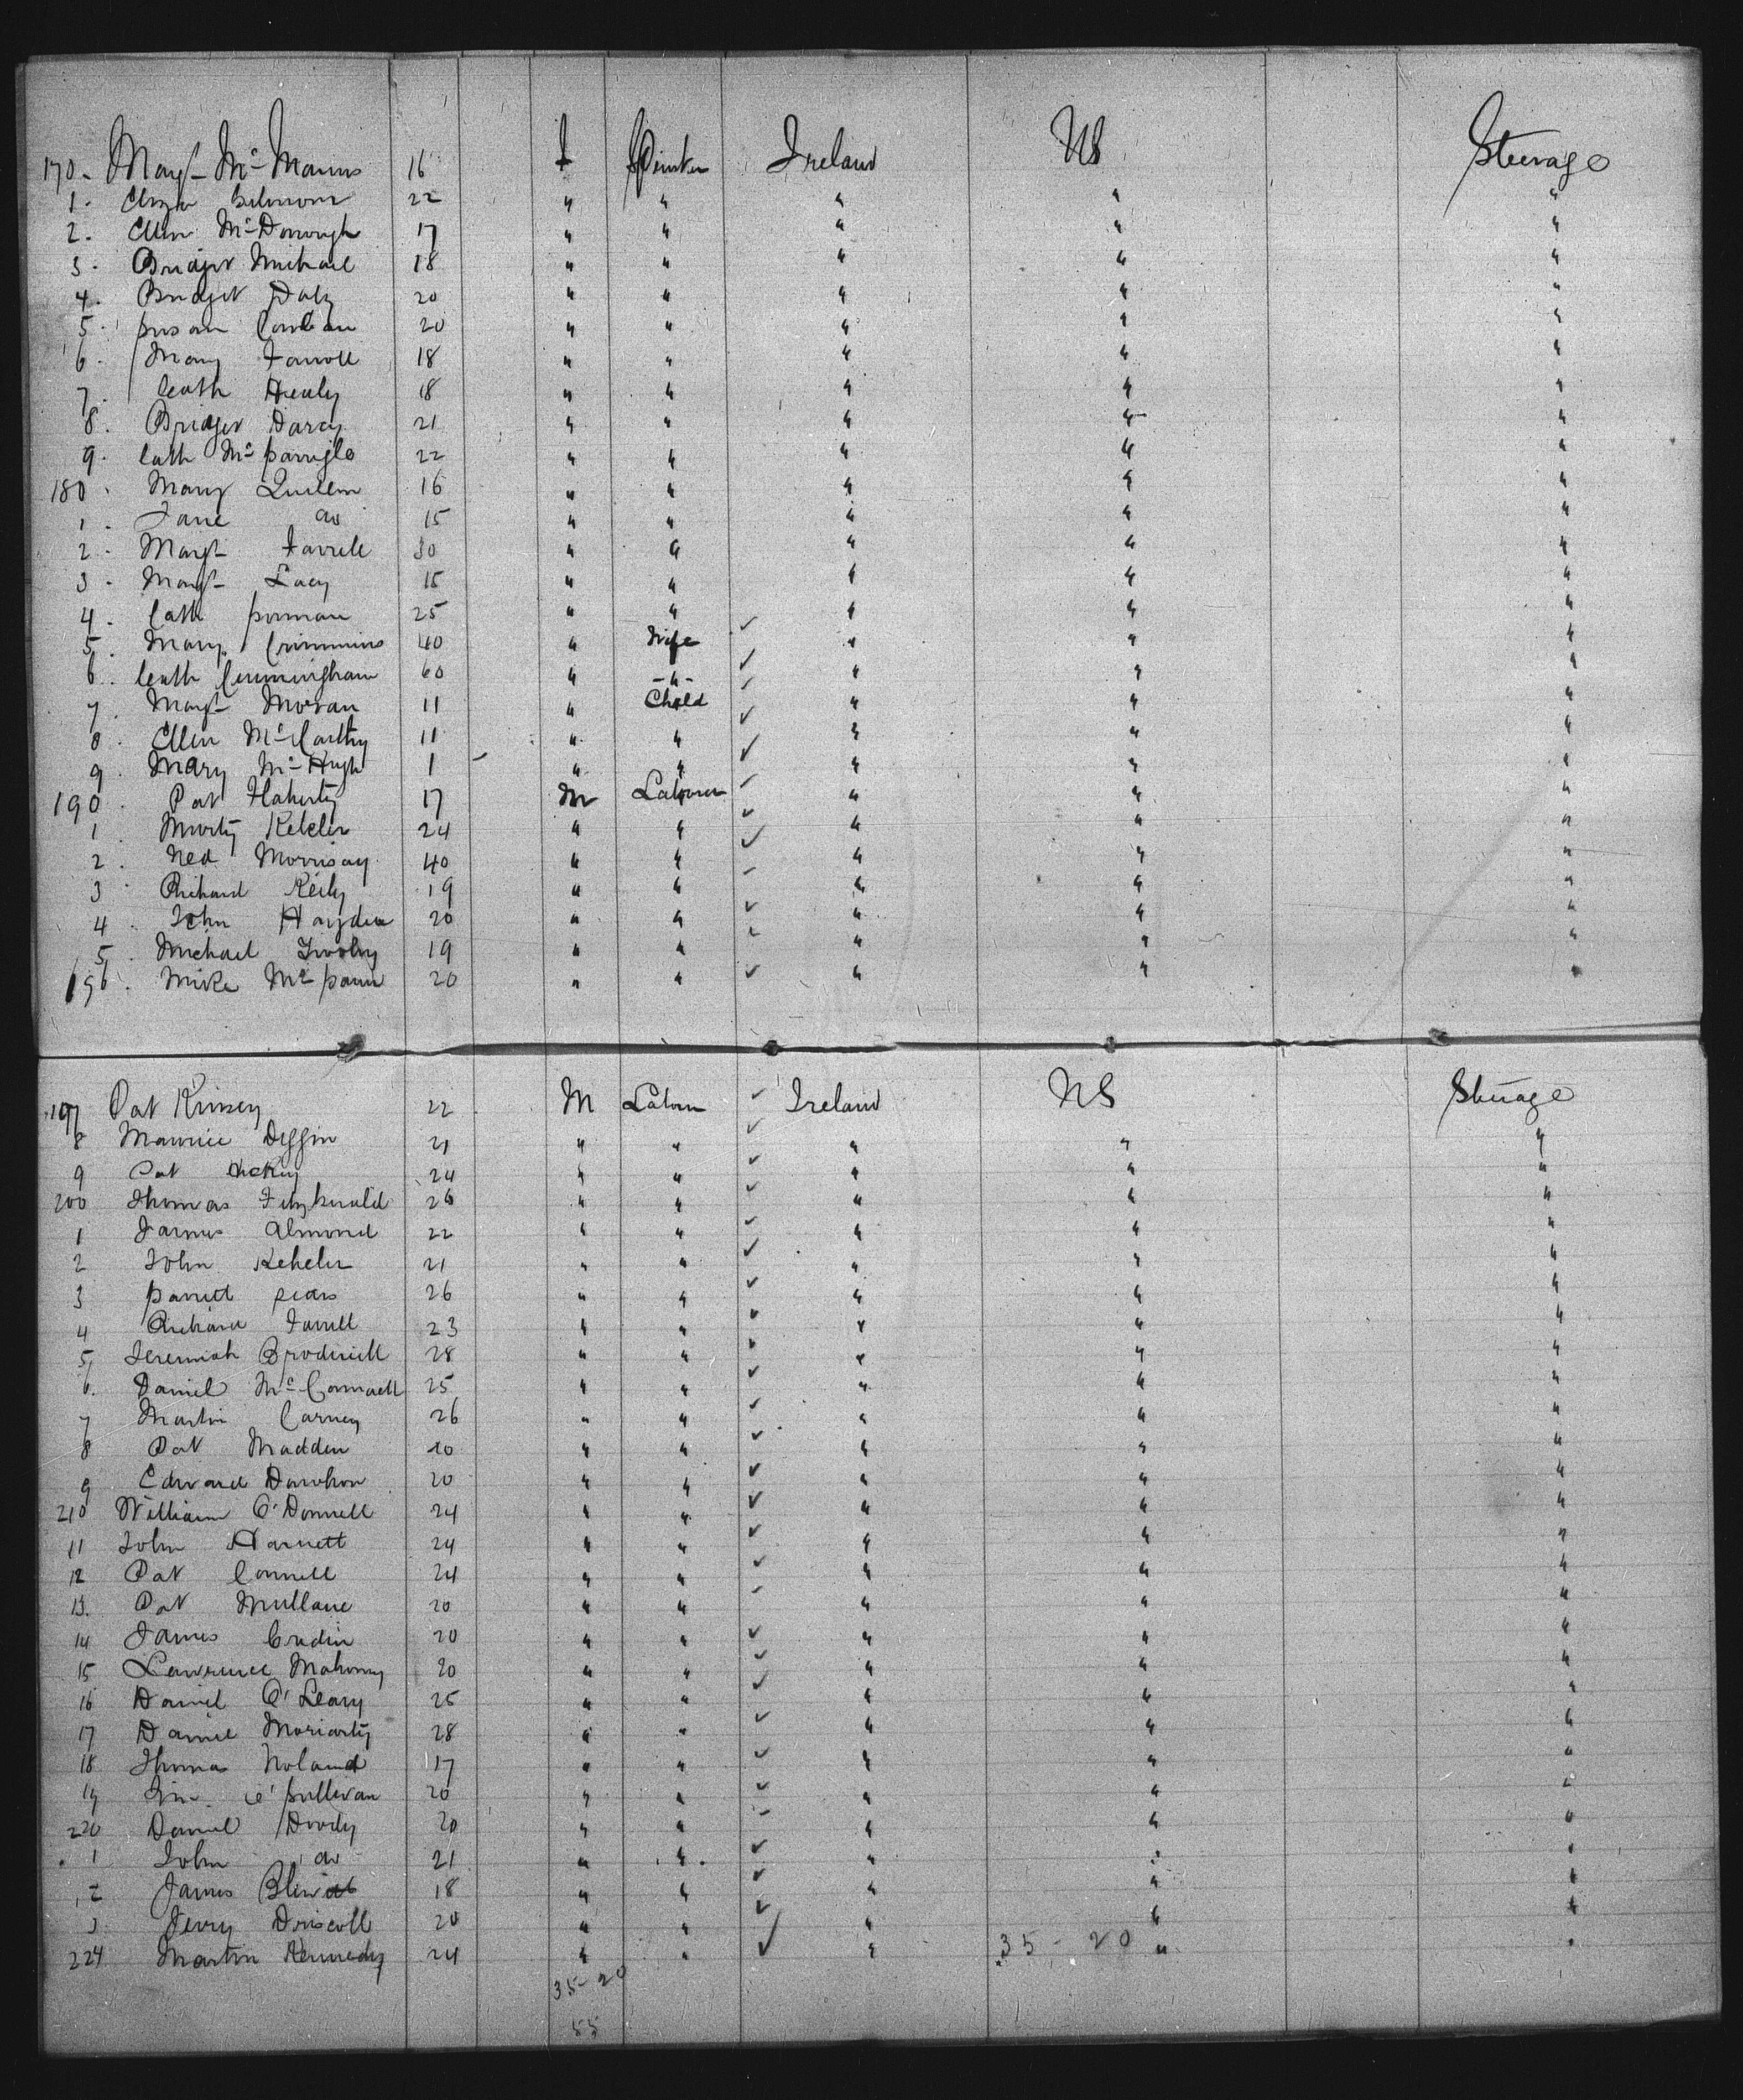 170. Margt McManus 16 f Spinster Ireland US Steerage
1. Eliza Gilmour 22 " " " " "
2. Ellen McDonough 17 " " " " "
3. Bridget Michael 18 " " " " "
4. Bridget Daly 20 " " " " "
5. Susan 20 " " " " "
6. Mary Farrell 18 " " " " "
7. Cath Healy 18 " " " " "
8. Bridget Darcy 21 " " " " "
9. Cath 22 " " " " "
180. Mary 16 " " " " "
1. Jane do 15 " " " " "
2. Margt Farrell 30 " " " " "
3. Margt Lacy 15 " " " " "
4. Cath 25 " " " " "
5. Mary Crimmins 40 " Wife " " "
6. Cath Cunningham 60 " -"- " " "
7. Margt Moran 11 " Child " " "
8. Ellen McCarthy 11 " " " " "
9. Mary McHugh 1 " " " " "
190. Pat Flaherty 17 M Laborer " " "
1. Morty Keleher 24 " " " " "
2. Ned Morrisay 40 " " " " "
3. Richard Reily 19 " " " " "
4. John Hayden 20 " " " " "
5. Michael 19 " " " " "
196. Mike 20 " " " " "
197 Pat 22 M Labor Ireland US Steerage
8 Maurice 21 " " " " "
9 Pat Hickey 24 " " " " "
200 Thomas Fitzgerald 26 " " " " "
1 James Almond 22 " " " " "
2 John Keheler 21 " " " " "
3 Garrett 26 " " " " "
4 Richard Farrell 23 " " " " "
5 Jeremiah Broderick 28 " " " " "
6. Daniel McConnell 25 " " " " "
7 Martin Carney 26 " " " " "
8 Pat Madden 20 " " " " "
9 Edward Donohoe 20 " " " " "
210 William O'Donnell 24 " " " " "
11 John Harnett 24 " " " " "
12 Pat Connell 24 " " " " "
13. Pat Mullane 20 " " " " "
14 James 20 " " " " "
15 Lawrence Mahony 20 " " " " "
16 Daniel O'Leary 25 " " " " "
17 Daniel Moriarty 28 " " " " "
18 Thomas Noland 17 " " " " "
19 O'Sullivan 20 " " " " "
220 Daniel Doody 20 " " " " "
1 John do 21 " " " " "
2 James 18 " " " " "
3 Jerry Driscoll 20 " " " " "
224 Martin Kennedy 24 " " " 35 - 20 " "
35-20
55